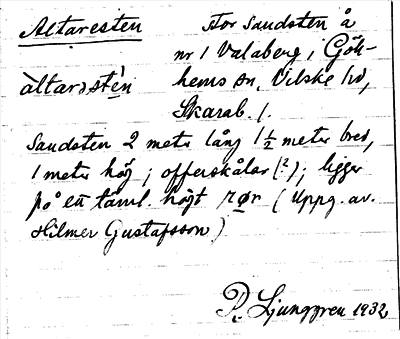 Altaresten
Stor sandsten å
nr 1 Valaberg i Gök-
hems sn, Vilske hd,
Skarab. l.
àltarəste̍n
Sandsten 2 meter lång 1½ meter bred,
1 meter hög; offerskålar (2); ligger
på ett täml. högt rør (Uppg. av.
Hilmer Gustafsson)
P. Ljunggren 1932